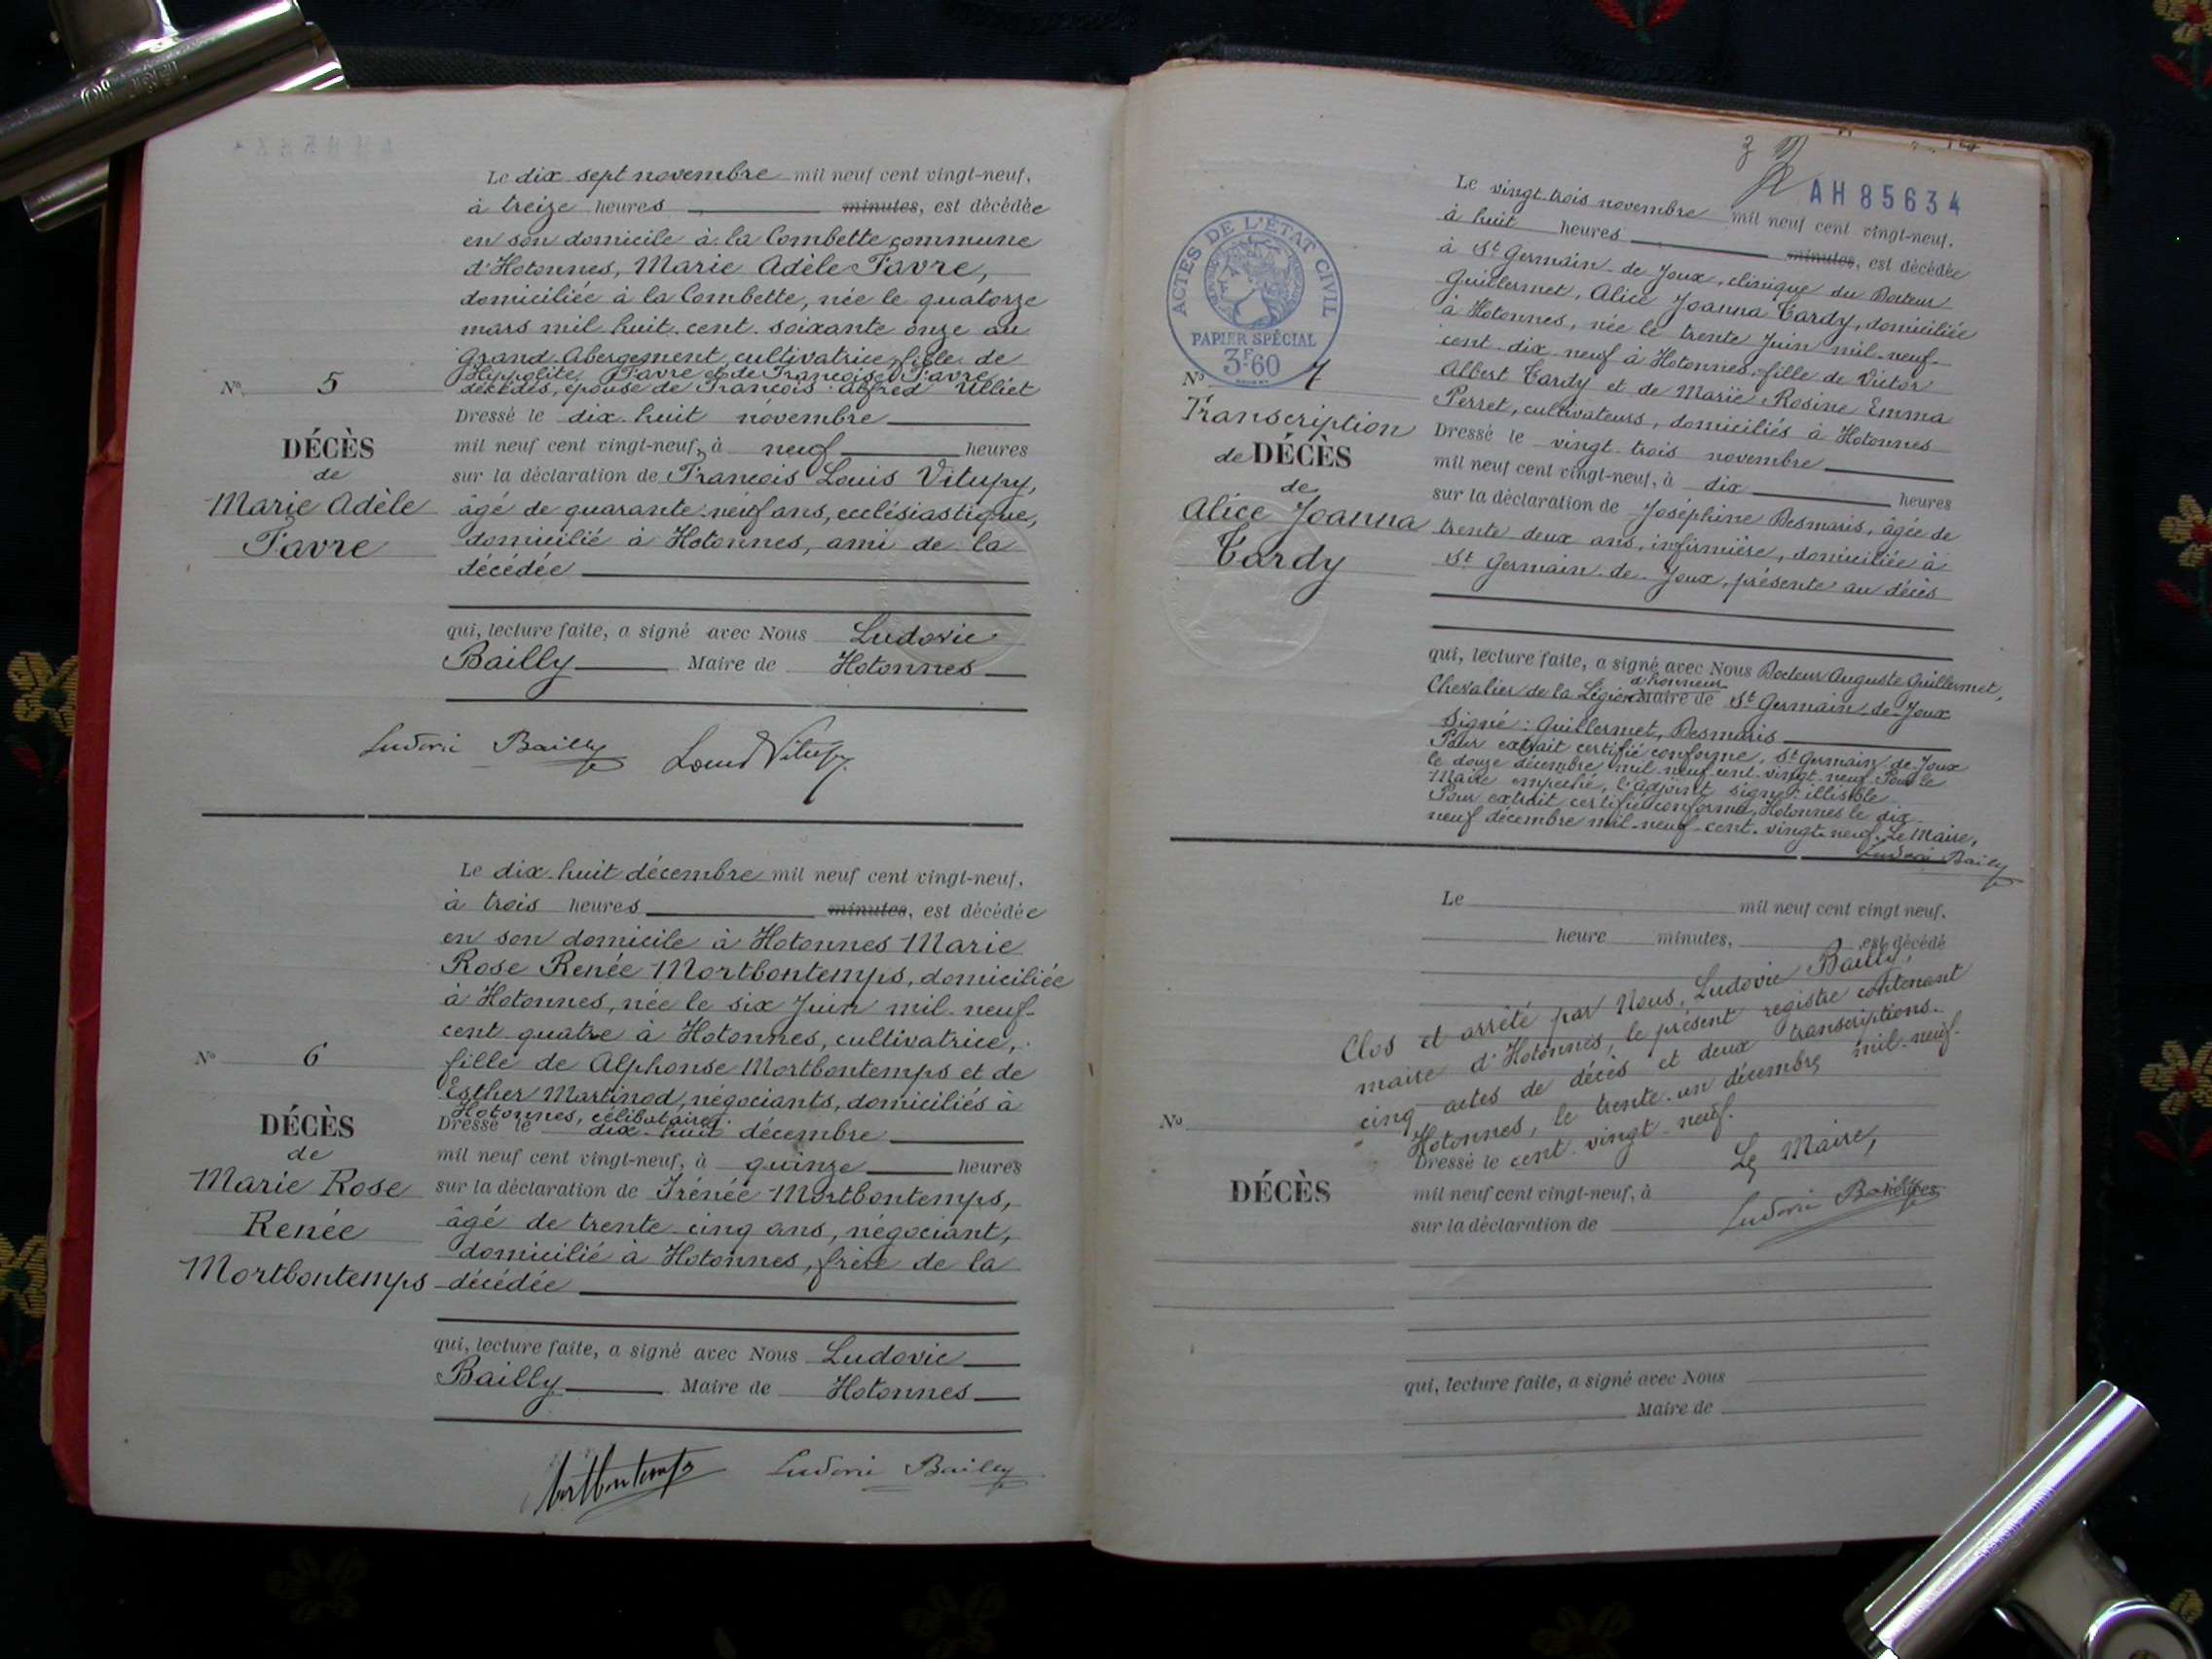 Le dix sept novembre mil neuf cent vingt-neuf,
à treize heures minutes, est décédée
en son domicile à la Combette commune
d'Hotonnes, Marie Adèle Favre,
domiciliée à la Combette, née le quatorze
mars mil huit cent soixante onze au
Grand-Abergement, cultivatrice, fille de
Hippolite Favre et de Françoise Favre,
décédés, épouse de François Alfred Ulliet
N° 5
DÉCÈS
de
Marie Adèle
Favre
Dressé le dix-huit novembre
mil neuf cent vingt-neuf, à neuf heures
sur la déclaration de François Louis Vitupy,
âgé de quarante-neuf ans, ecclésiastique,
domicilié à Hotonnes, ami de la
décédée
qui, lecture faite, a signé avec Nous Ludovic
Bailly Maire de Hotonnes
Ludovic Bailly Louis Vitupy
Le dix-huit décembre mil neuf cent vingt-neuf,
à trois heures minutes, est décédée
en son domicile à Hotonnes Marie
Rose Renée Mortbontemps, domiciliée
à Hotonnes, née le six Juin mil-neuf-
cent quatre à Hotonnes, cultivatrice,
fille de Alphonse Mortbontemps et de
Esther Martinod, négociants, domiciliés à
Hotonnes, célibataire.
N° 6
DÉCÈS
de
Marie Rose
Renée
Mortbontemps
Dressé le dix-huit décembre
mil neuf cent vingt-neuf, à quinze heures
sur la déclaration de Irénée Mortbontemps,
âgé de trente-cinq ans, négociant,
domicilié à Hotonnes, frère de la
décédée
qui, lecture faite, a signé avec Nous Ludovic
Bailly Maire de Hotonnes
Mortbontemps Ludovic Bailly
AH 85634
ACTES DE L'ÉTAT CIVIL
PAPIER SPÉCIAL
3F60
Le vingt-trois novembre mil neuf cent vingt-neuf,
à huit heures minutes, est décédée
à St Germain-de-Joux, clinique du Docteur
Guillermet, Alice Joanna Tardy, domiciliée
à Hotonnes, née le trente Juin mil-neuf-
cent-dix-neuf à Hotonnes, fille de Victor
Albert Tardy et de Marie Rosine Emma
Perret, cultivateurs, domiciliés à Hotonnes
N° 7
Transcription
de DÉCÈS
de
Alice Joanna
Tardy
Dressé le vingt-trois novembre
mil neuf cent vingt-neuf, à dix heures
sur la déclaration de Joséphine Desmaris, âgée de
trente deux ans, infirmière, domiciliée à
St Germain-de-Joux, présente au décès
qui, lecture faite, a signé avec Nous Docteur Auguste Guillermet,
Chevalier de la Légion d'honneur Maire de St Germain-de-Joux
Signé : Guillermet, Desmaris
Pour extrait certifié conforme, St Germain-de-Joux
le douze décembre mil-neuf-cent-vingt-neuf. Pour le
Maire empêché, l'adjoint signé : illisible
Pour extrait certifié conforme, Hotonnes le dix-
neuf décembre mil-neuf-cent-vingt-neuf. Le Maire,
Ludovic Bailly
Le mil neuf cent vingt neuf,
heure minutes, est décédé
Clos et arrêté par Nous, Ludovic Bailly,
maire d'Hotonnes, le présent registre contenant
cinq actes de décès et deux transcriptions.
Hotonnes, le trente-un décembre mil-neuf-
cent-vingt-neuf.
Le Maire,
Ludovic Bailly
N°
DÉCÈS
Dressé le
mil neuf cent vingt-neuf, à heures
sur la déclaration de
qui, lecture faite, a signé avec Nous
Maire de